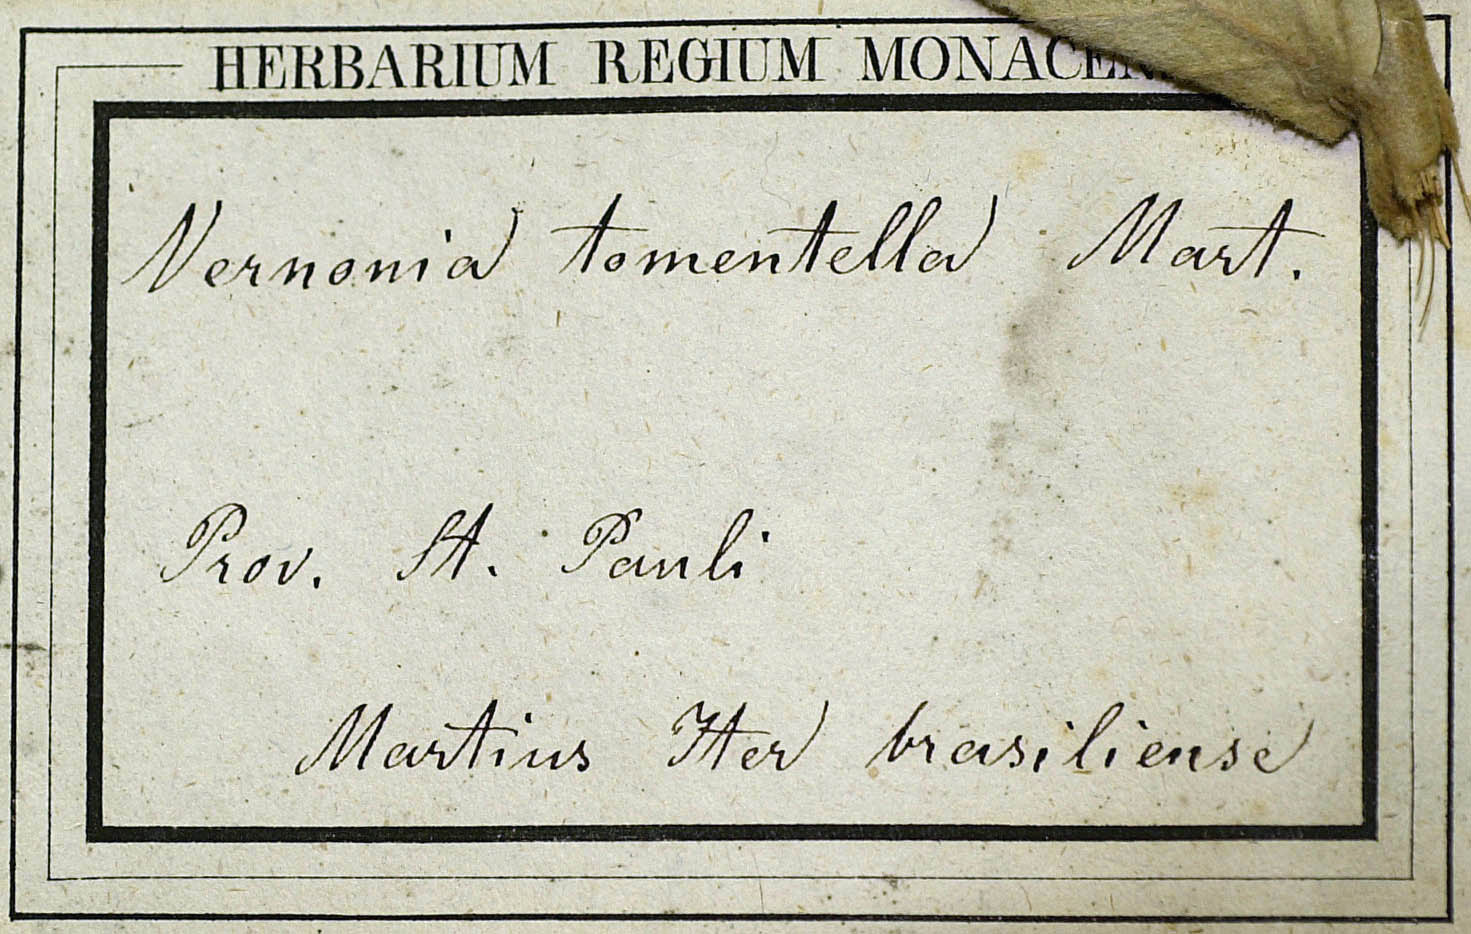 HERBARIUM REGIUM
Vernonia tomentella Mart.
Prov. St. Pauli
Martius Iter brasiliense